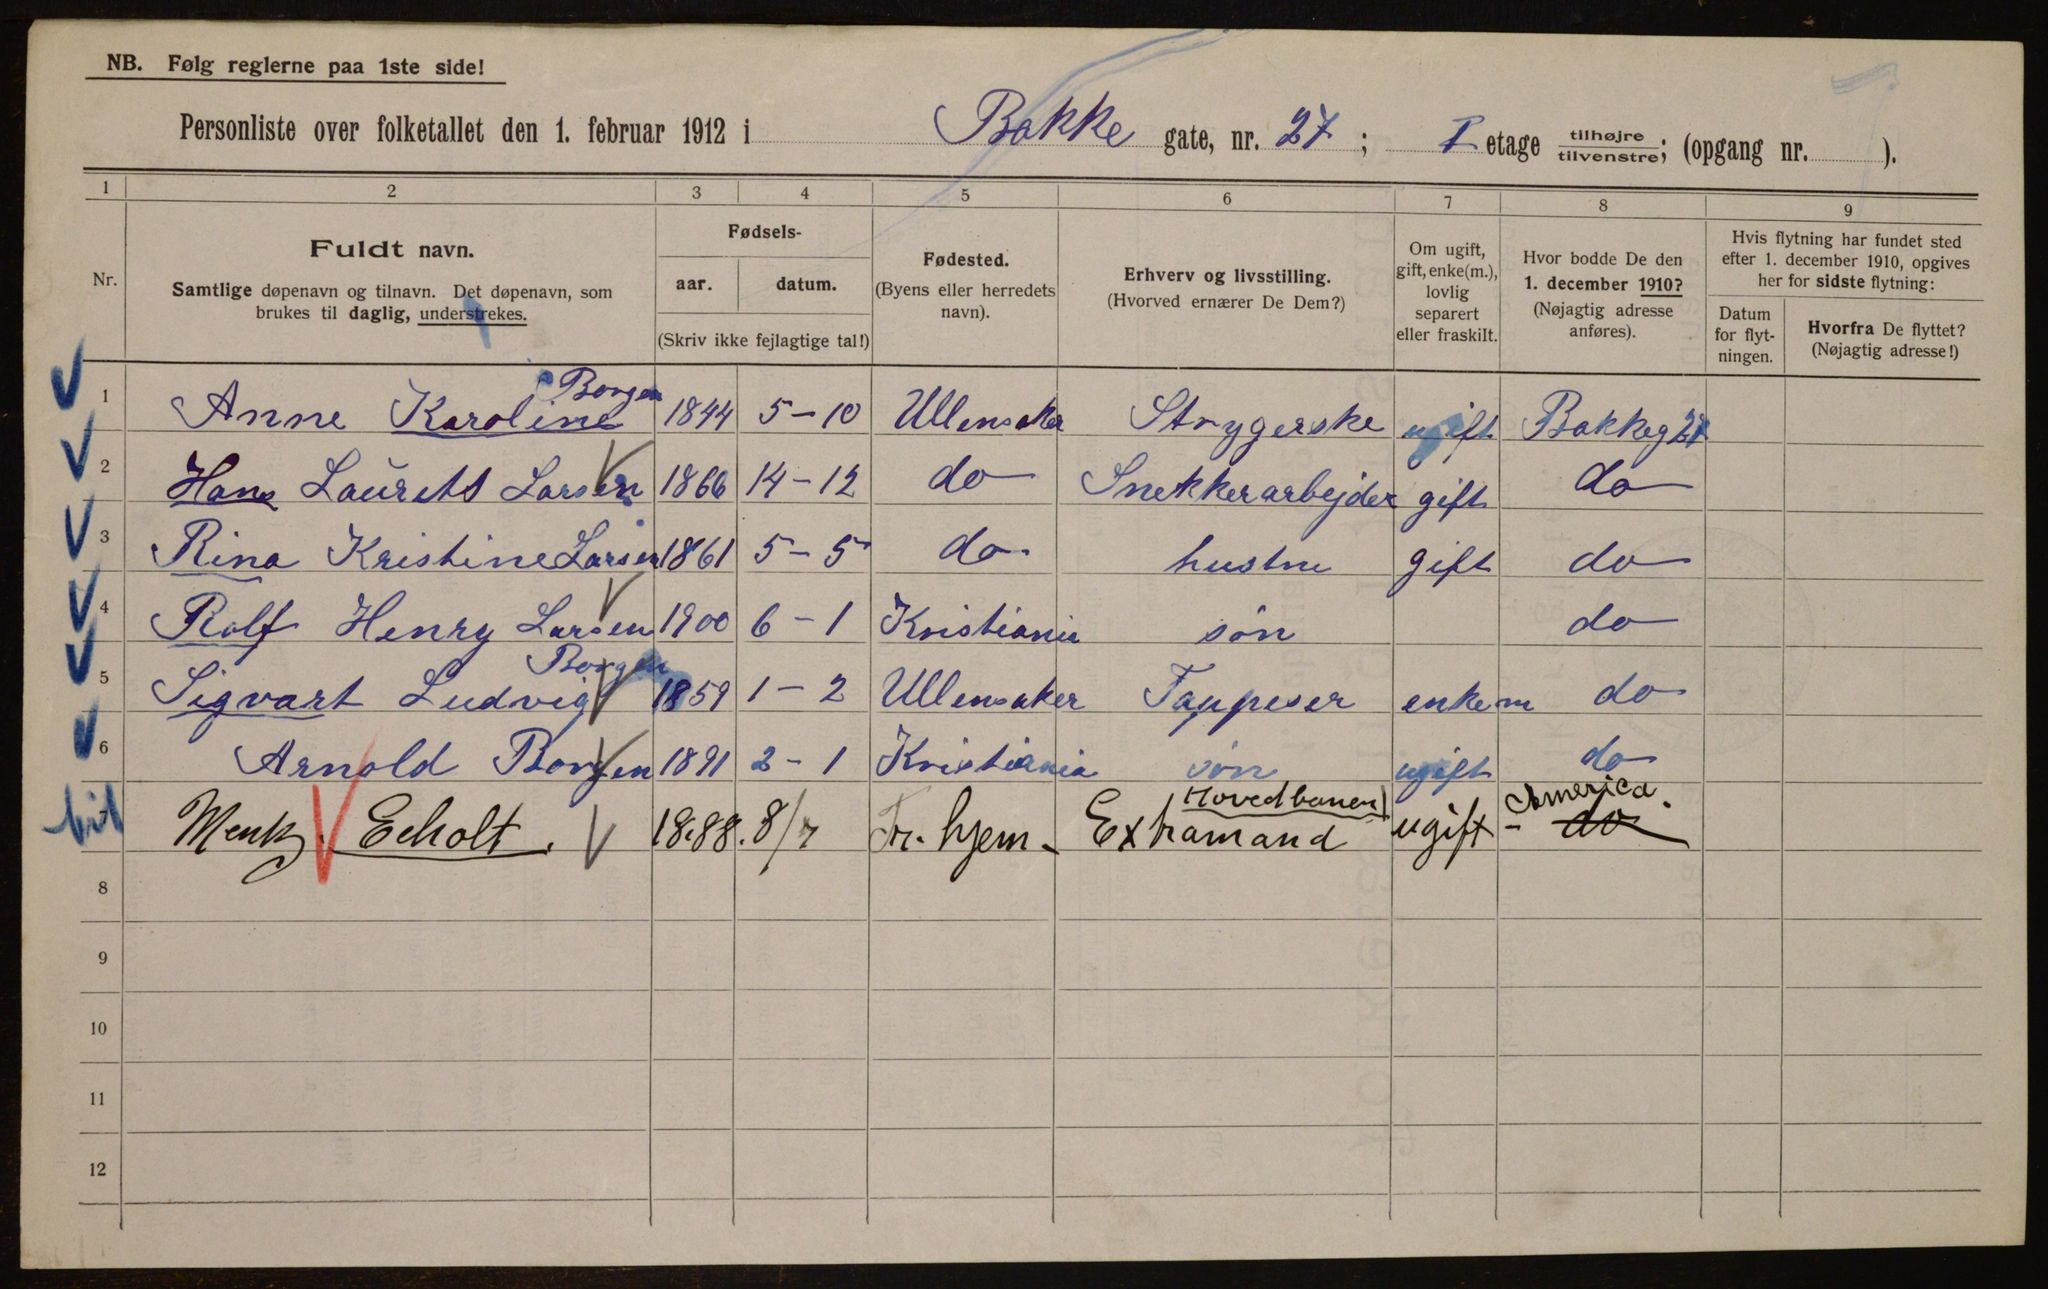 NB. Følg reglerne paa 1ste side!
Personliste over folketallet den 1. februar 1912 i Bakke gate, nr. 27; I etage tilhøjre/tilvenstre; (opgang nr. ).
1 2 3 4 5 6 7 8 9
Nr.
Fuldt navn.
Samtlige døpenavn og tilnavn. Det døpenavn, som
brukes til daglig, understrekes.
Fødsels-
aar. datum.
(Skriv ikke fejlagtige tal!)
Fødested.
(Byens eller herredets
navn).
Erhverv og livsstilling.
(Hvorved ernærer De Dem?)
Om ugift,
gift, enke(m.),
lovlig
separert
eller fraskilt.
Hvor bodde De den
1. december 1910?
(Nøjagtig adresse
anføres).
Hvis flytning har fundet sted
efter 1. december 1910, opgives
her for sidste flytning:
Datum
for flyt-
ningen.
Hvorfra De flyttet?
(Nøjagtig adresse!)
1 Anne Karoline Borgen 1844 5-10 Ullensaker Strygerske ugift Bakkeg 27
2 Hans Laurets Larsen 1866 14-12 do Snekkerarbejder gift do
3 Rina Kristine Larsen 1861 5-5 do hustru gift do
4 Rolf Henry Larsen 1900 6-1 Kristiania søn do
5 Sigvart Ludvig Borgen 1859 1-2 Ullensaker Tappeser enkem do
6 Arnold Borgen 1891 2-1 Kristiania søn ugift do
Menk. Echolt. 1888. 8/7 Fr. hjem- Extramand Hovedbanen ugift - do America.
8
9
10
11
12